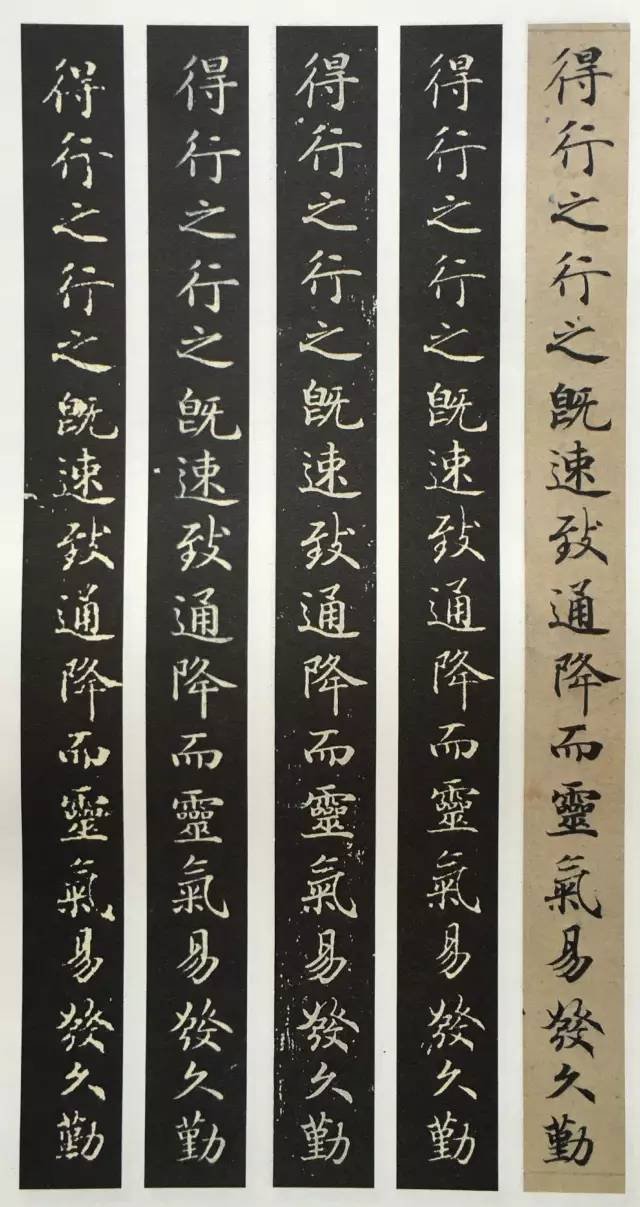 得行之行之既速致通降而靈氣易發久勤
得行之行之既速致通降而靈氣易發久勤
得行之行之既速致通降而靈氣易發久勤
得行之行之既速致通降而靈氣易發久勤
得行之行之既速致通降而靈氣易發久勤